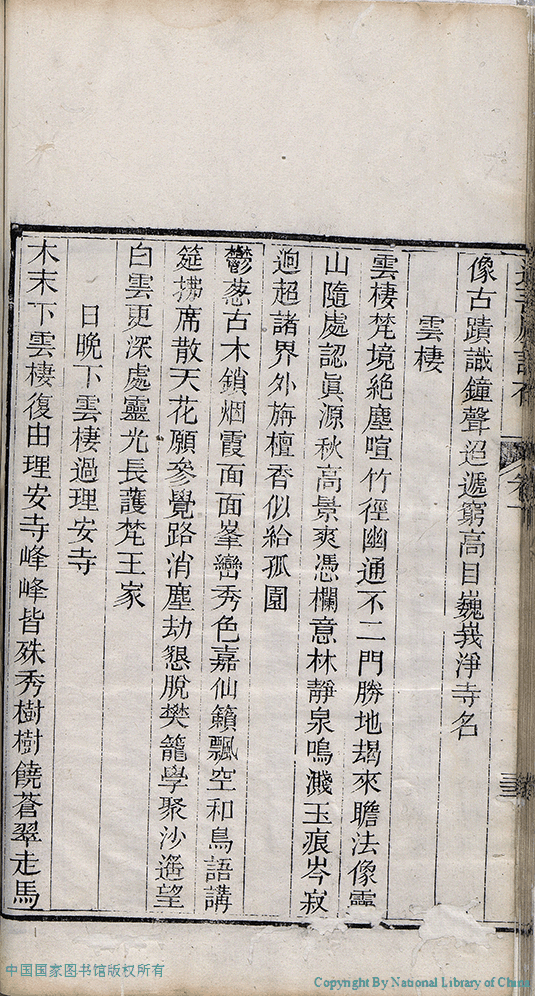 像古蹟識鐘聲迢遞窮高目巍峩淨寺名
雲棲
雲棲梵境絶塵喧竹徑幽通不二門勝地朅來瞻法像靈
山隨處認眞源秋高景爽憑欄意林靜泉鳴濺玉痕岑寂
逈超諸界外旃檀香似給孤園
鬱葱古木鎖烟霞面面峯巒秀色嘉仙籟飄空和鳥語講
筵拂席散天花願參覺路消塵劫懇脫樊籠學聚沙遙望
白雲更深處靈光長護梵王家
日晚下雲棲過理安寺
木末下雲棲復由理安寺峰峰皆殊秀樹樹饒蒼翠走馬
中国国家图书馆版权所有
Copyright By National Library of China